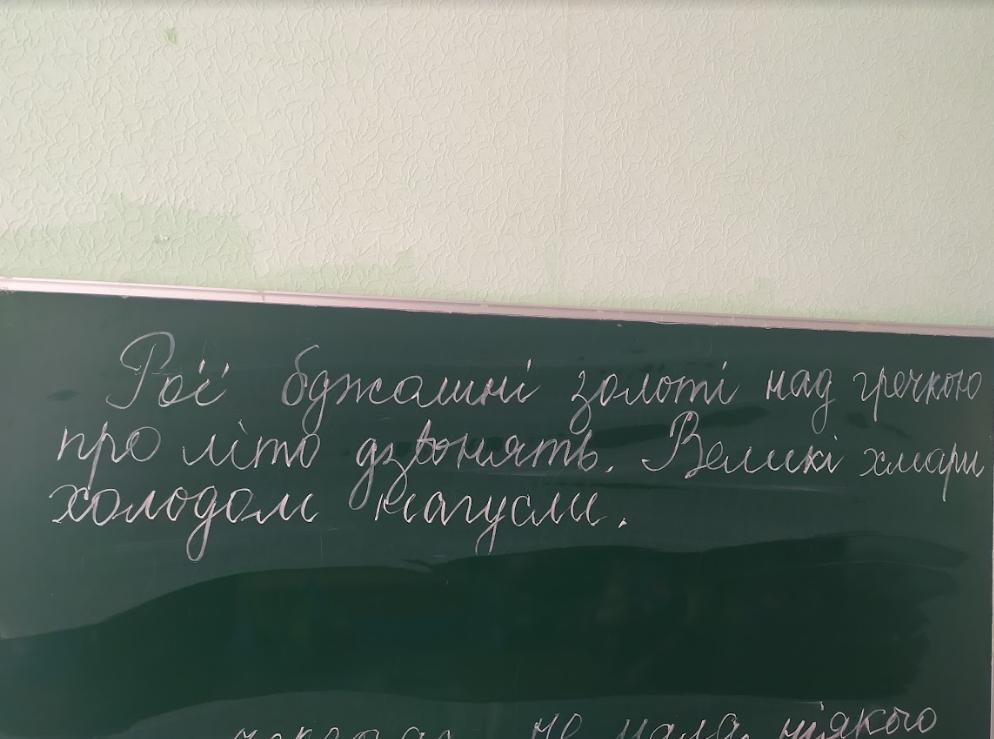 Рої бджолині золоті над гречкою
про літо дзвонять. Великі хмари
холодом
не мала ніякого